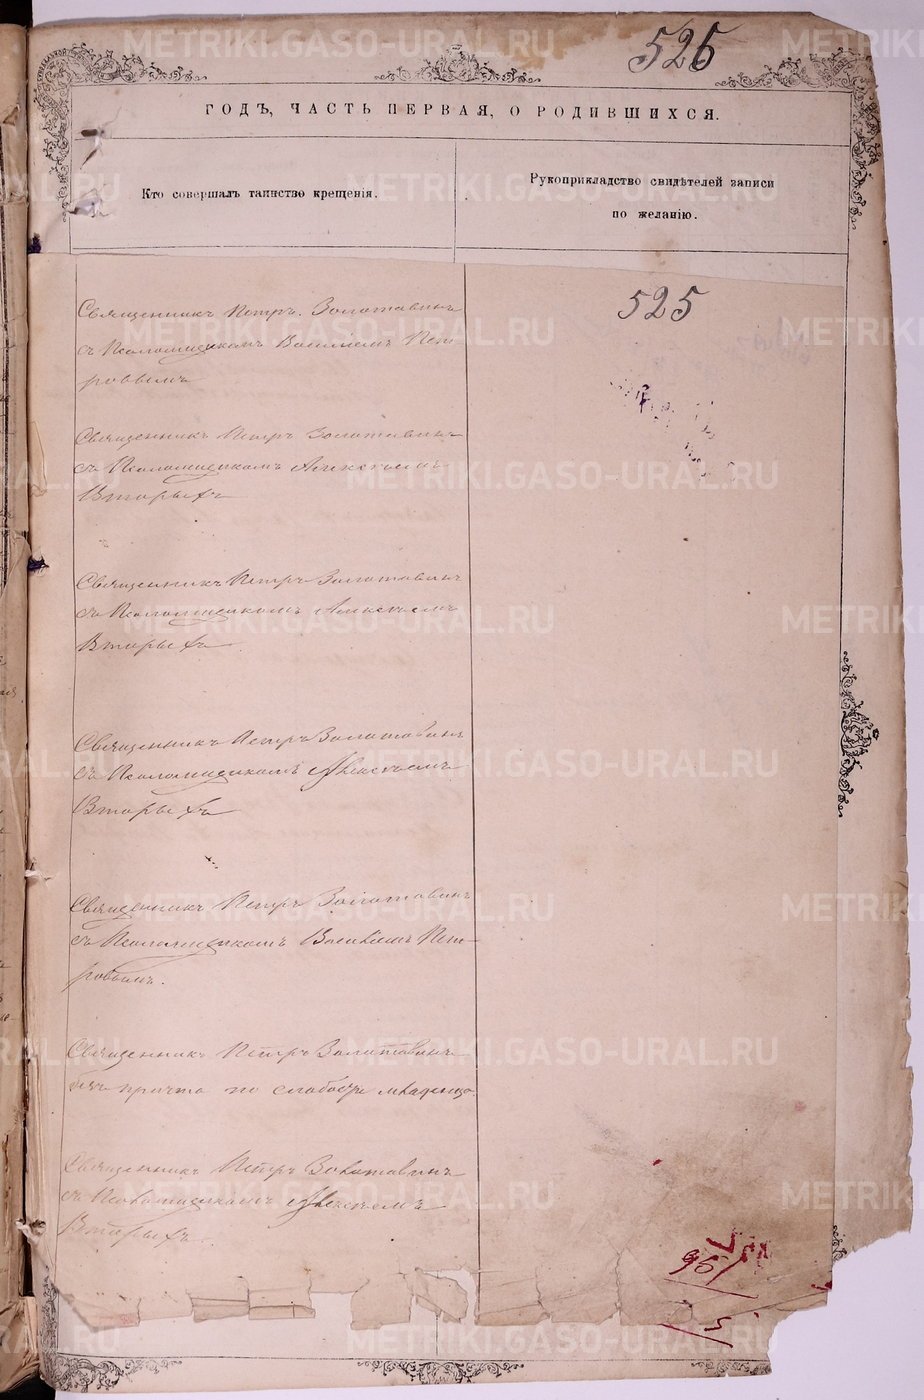 525
ГОДЪ, ЧАСТЬ ПЕРВАЯ, О РОДИВШИХСЯ.
Кто совершалъ таинство крещенія.
Рукоприкладство свидѣтелей записи
по желанію.
525
Священникъ Петръ Золотавинъ
съ Псаломщикомъ Василіемъ Пет-
ровымъ
Священникъ Петръ Золотавинъ
съ Псаломщикомъ Алексѣемъ
Вторыхъ
Священникъ Петръ Золотавинъ
съ Псаломщикомъ Алексѣемъ
Вторыхъ
Священникъ Петръ Золотавинъ
съ Псаломщикомъ Алексѣемъ
Вторыхъ
Священникъ Петръ Золотавинъ
съ Псаломщикомъ Василіемъ Пет-
ровымъ.
Священникъ Петръ Золотавинъ
безъ причта по слабости младенца.
Священникъ Петръ Золотавинъ
съ Псаломщикомъ Алексѣемъ
Вторыхъ
METRIKI.GASO-URAL.RU